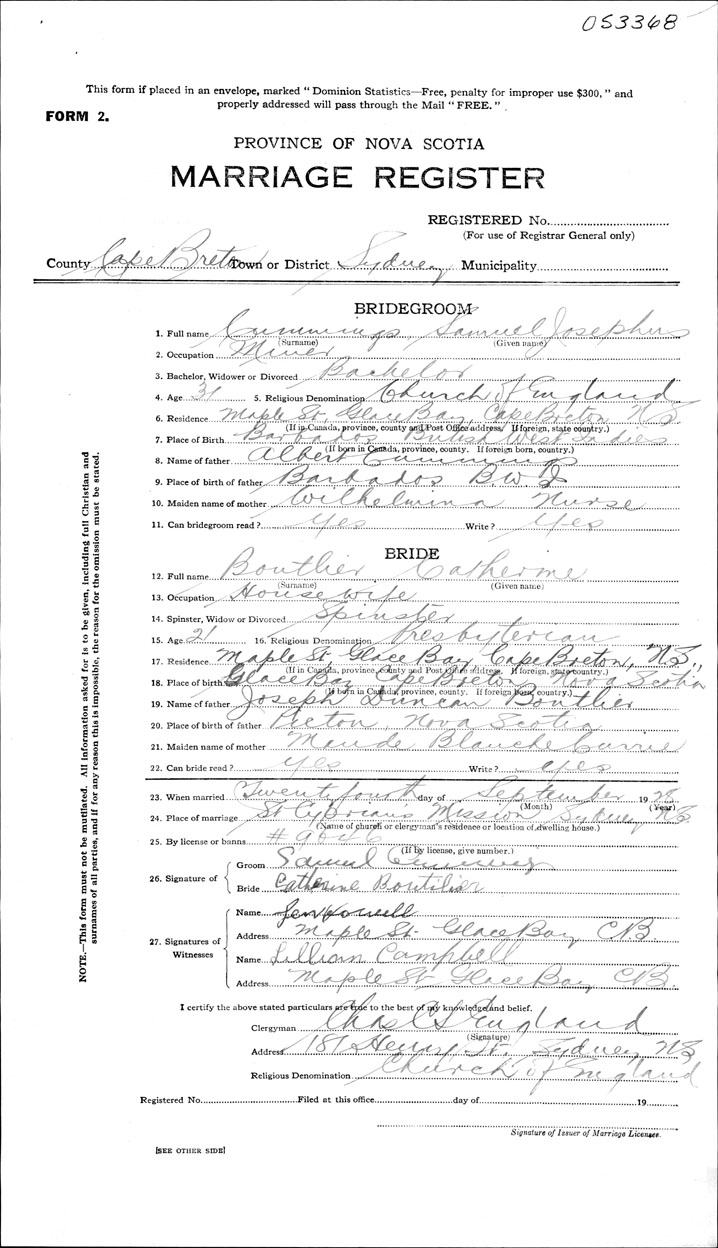 053368
This form if placed in an envelope, marked " Dominion Statistics—Free, penalty for improper use $300," and
properly addressed will pass through the Mail " FREE. "
FORM 2.
PROVINCE OF NOVA SCOTIA
MARRIAGE REGISTER
REGISTERED No.
(For use of Registrar General only)
County Cape Breton Town or District Sydney Municipality
BRIDEGROOM
1. Full name Cummings Samuel Josephus
(Surname) (Given name)
2. Occupation Miner
3. Bachelor, Widower or Divorced Bachelor
4. Age 31 5. Religious Denomination Church of England
6. Residence Maple St, Glace Bay, Cape Breton NS
(If in Canada, province, county and Post Office address. If foreign, state country.)
7. Place of Birth Barbados British West Indies
(If born in Canada, province, county. If foreign born, country.)
8. Name of father Albert Cummings
9. Place of birth of father Barbados B.W.I
10. Maiden name of mother Wilhelmina Nurse
11. Can bridegroom read? Yes Write? Yes
BRIDE
12. Full name Boutlier Catherine
(Surname) (Given name)
13. Occupation Housewife
14. Spinster, Widow or Divorced Spinster
15. Age 21 16. Religious Denomination Presbyterian
17. Residence Maple St, Glace Bay, Cape Breton, N.S.,
(If in Canada, province, county and Post Office address. If foreign, state country.)
18. Place of birth Glace Bay Cape Breton Nova Scotia
(If born in Canada, province, county. If foreign born, country.)
19. Name of father Joseph Duncan Boutlier
20. Place of birth of father Pictou, Nova Scotia
21. Maiden name of mother Maude Blanche Currie
22. Can bride read? Yes Write? Yes
23. When married Twenty fourth day of September 19 28
(Month) (Year)
24. Place of marriage St Cyprians Mission Sydney NS
(Name of church or clergyman's residence or location of dwelling house.)
25. By license or banns # 9646
(If by license, give number.)
26. Signature of
Groom Samuel Cummings
Bride Catherine Boutilier
27. Signatures of Witnesses
Name
Address Maple St. Glace Bay CB.
Name Lillian Campbell
Address Maple St Glace Bay CB.
I certify the above stated particulars are true to the best of my knowledge and belief.
Clergyman Chas England
(Signature)
Address 181 Henry St, Sydney, NS
Religious Denomination Church of England
Registered No. Filed at this office day of 19
Signature of Issuer of Marriage Licenses.
[SEE OTHER SIDE]
NOTE.—This form must not be mutilated. All information asked for is to be given, including full Christian and
surnames of all parties, and if for any reason this is impossible, the reason for the omission must be stated.